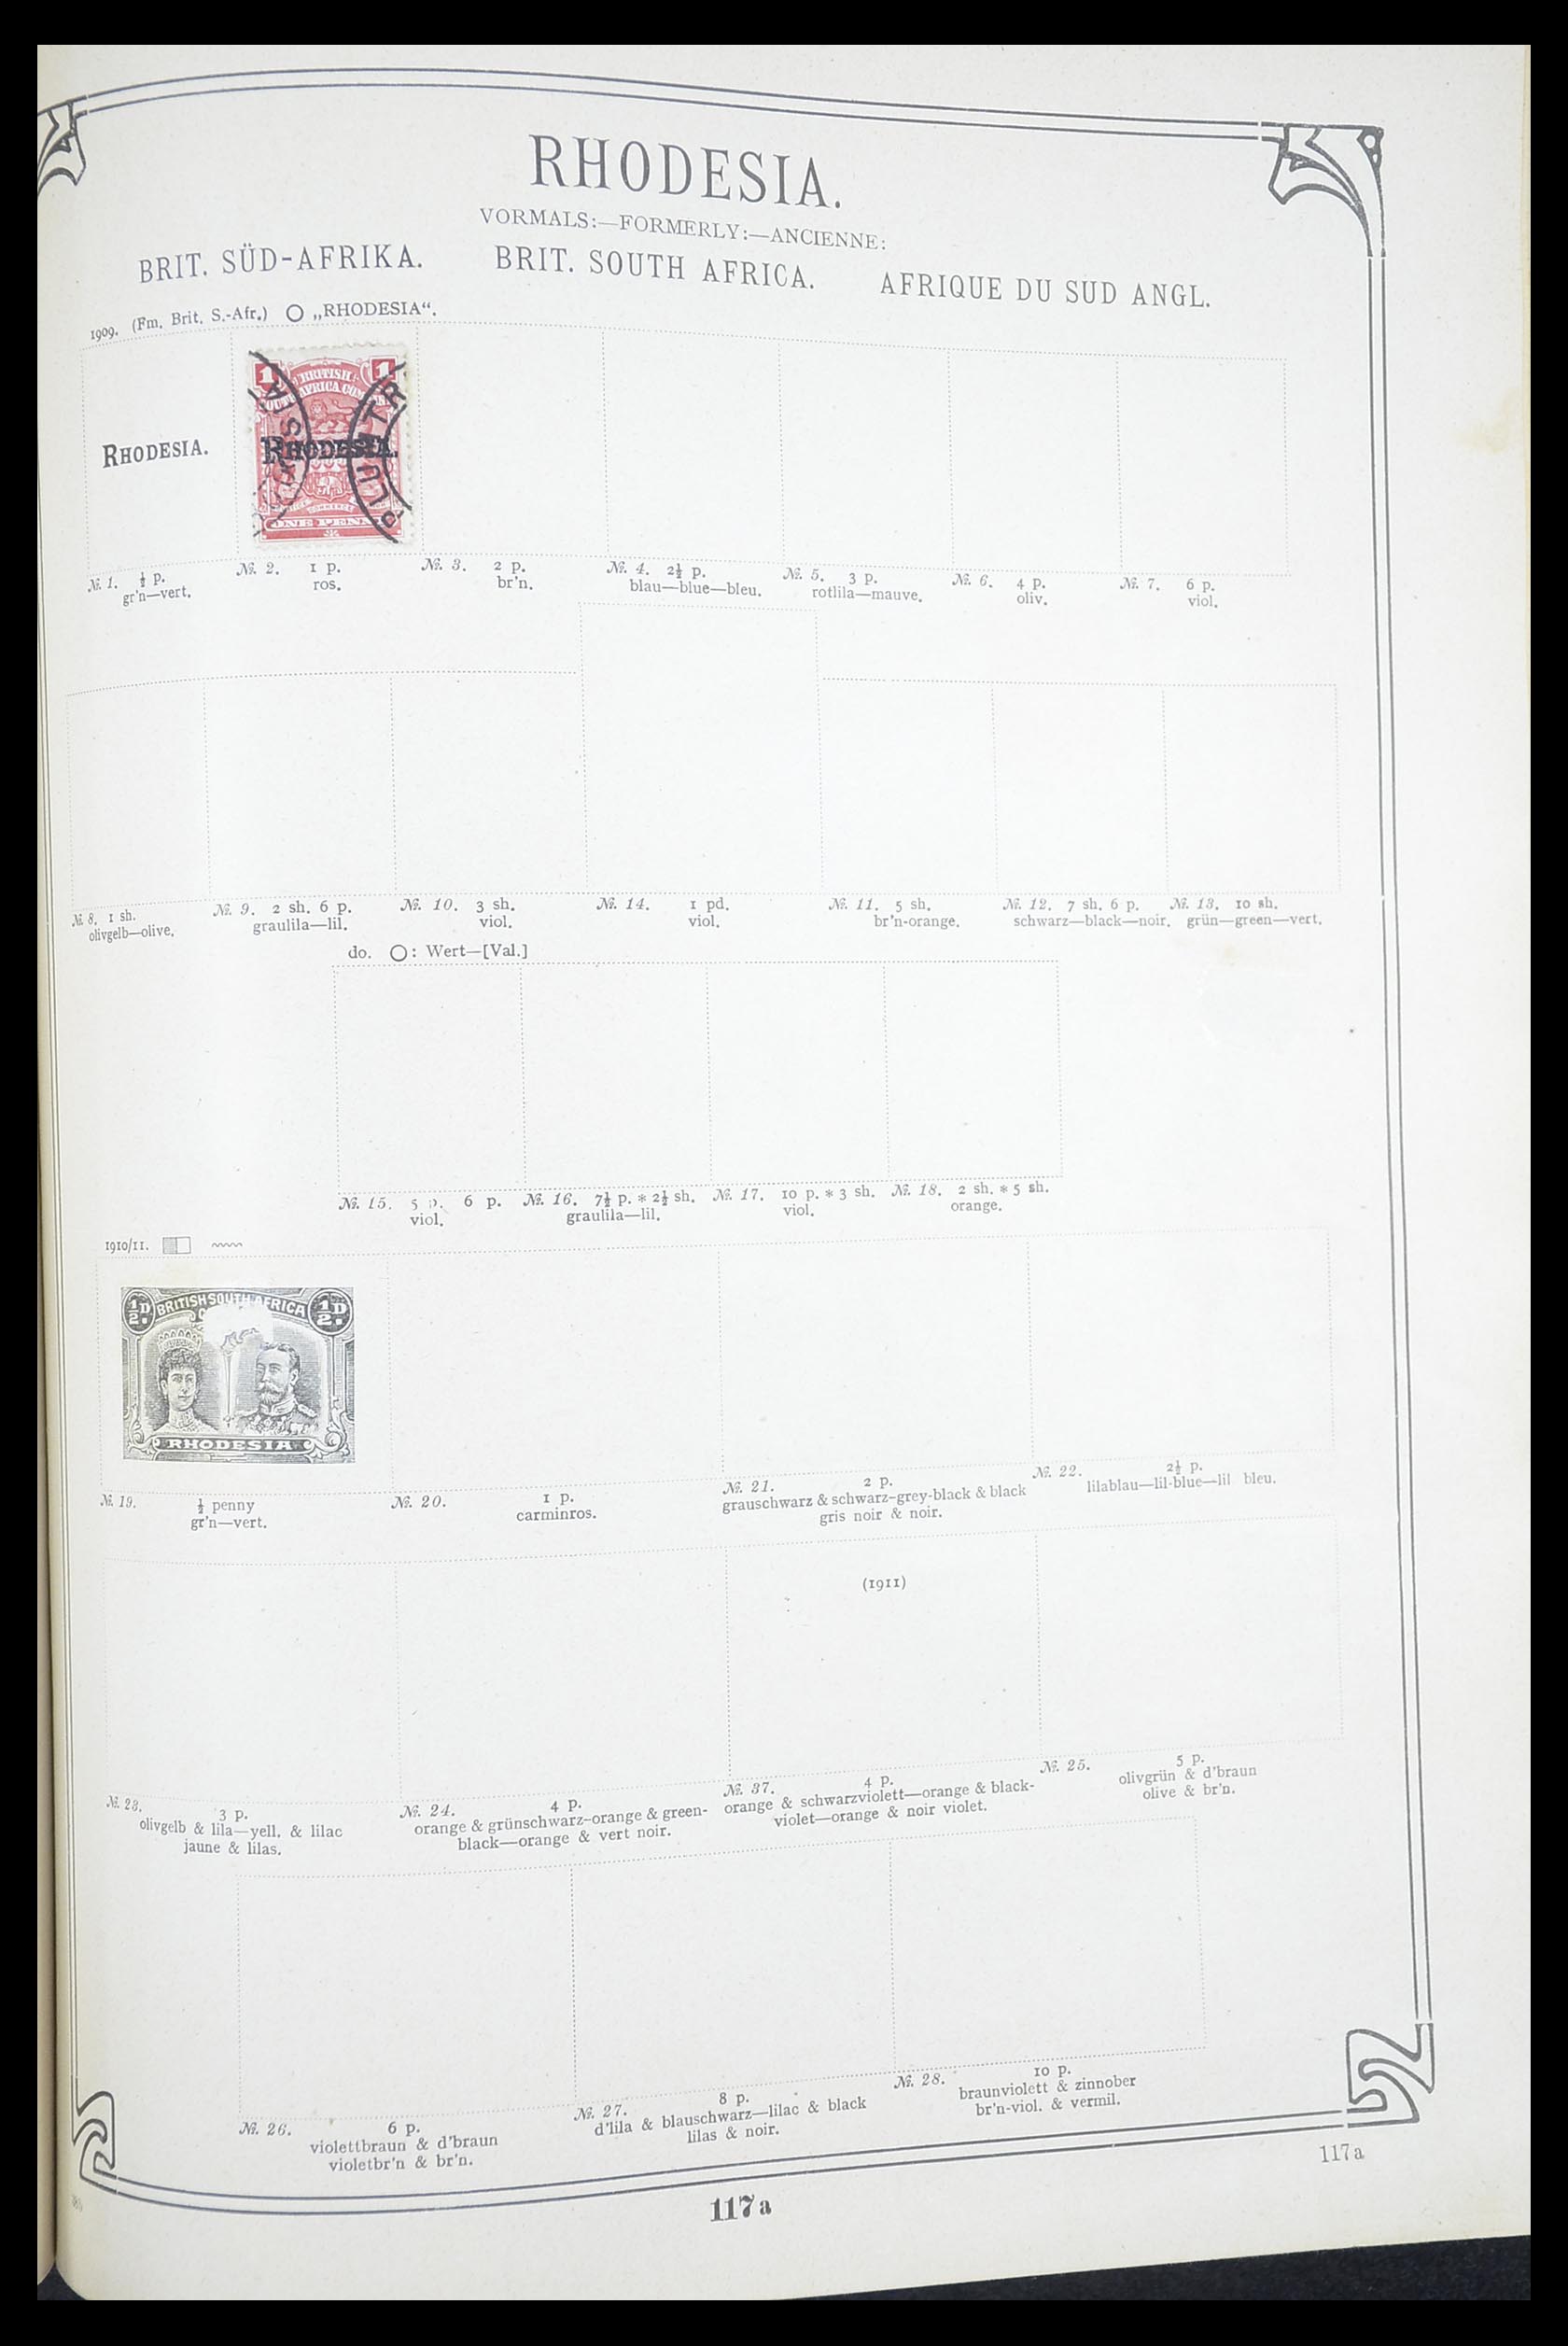 RHODESIA.
VORMALS:—FORMERLY:—ANCIENNE:
BRIT. SÜD-AFRIKA. BRIT. SOUTH AFRICA. AFRIQUE DU SUD ANGL.
1909. (Fm. Brit. S.-Afr.) ◯ „RHODESIA“.
RHODESIA.
1 1
BRITISH
SOUTH AFRICA COMPANY
RHODESIA.
ONE PENNY
№. 1. ½ p. №. 2. 1 p. №. 3. 2 p. №. 4. 2½ p. №. 5. 3 p. №. 6. 4 p. №. 7. 6 p.
gr'n—vert. ros. br'n. blau—blue—bleu. rotlila—mauve. oliv. viol.
№. 8. 1 sh. №. 9. 2 sh. 6 p. №. 10. 3 sh. №. 14. 1 pd. №. 11. 5 sh. №. 12. 7 sh. 6 p. №. 13. 10 sh.
olivgelb—olive. graulila—lil. viol. viol. br'n-orange. schwarz—black—noir. grün—green—vert.
do. ◯: Wert—[Val.]
№. 15. 5 p. 6 p. №. 16. 7½ p. * 2½ sh. №. 17. 10 p. * 3 sh. №. 18. 2 sh. * 5 sh.
viol. graulila—lil. viol. orange.
1910/11.
½D BRITISH SOUTH AFRICA ½D
RHODESIA
№. 19. ½ penny №. 20. 1 p. №. 21. 2 p. №. 22. 2½ p.
gr'n—vert. carminros. grauschwarz & schwarz-grey-black & black lilablau—lil-blue—lil bleu.
gris noir & noir.
(1911)
№. 23. 3 p. №. 24. 4 p. №. 37. 4 p. №. 25. 5 p.
olivgelb & lila—yell. & lilac orange & grünschwarz-orange & green- orange & schwarzviolett—orange & black- olivgrün & d'braun
jaune & lilas. black—orange & vert noir. violet—orange & noir violet. olive & br'n.
№. 26. 6 p. №. 27. 8 p. №. 28. 10 p.
violettbraun & d'braun d'lila & blauschwarz—lilac & black braunviolett & zinnober
violetbr'n & br'n. lilas & noir. br'n-viol. & vermil.
117a
117a